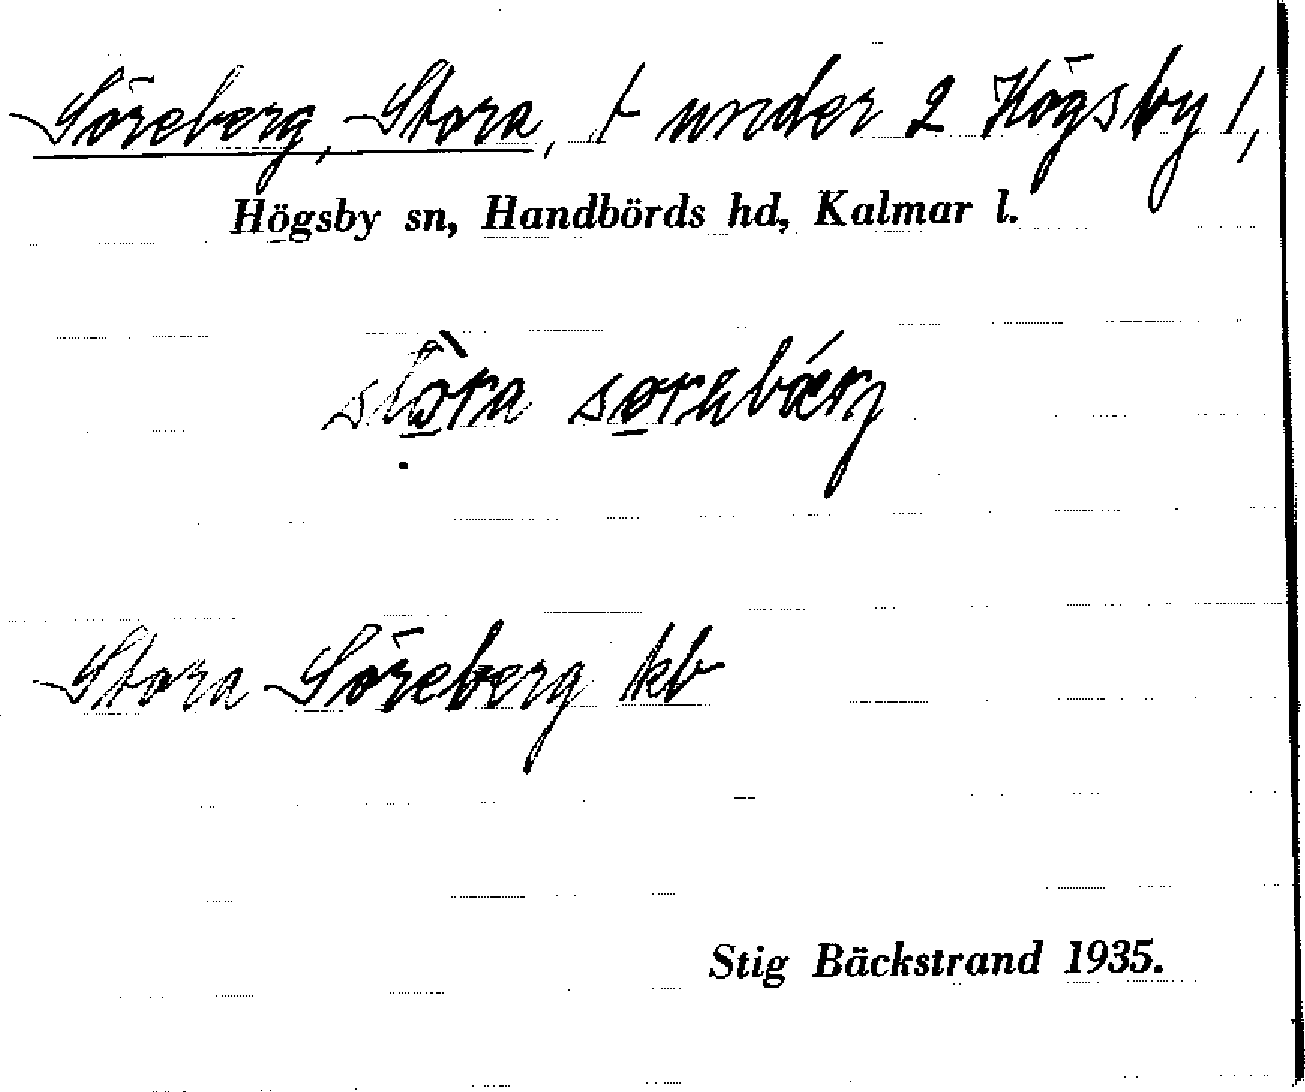 Söreberg, Stora, t under 2 Högsby 1,
Högsby sn, Handbörds hd, Kalmar l.
Stora Söreberg kb
Stig Bäckstrand 1935.